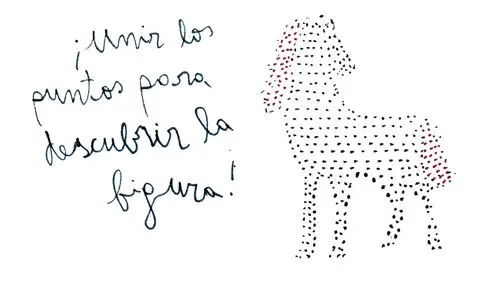 ¡Unir los
puntos para
descubrir la
figura!